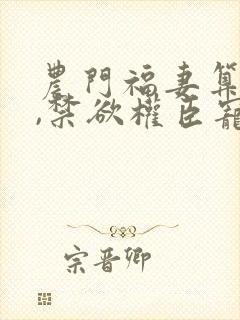 農門福妻算
,禁欲權臣寵
宗晉卿